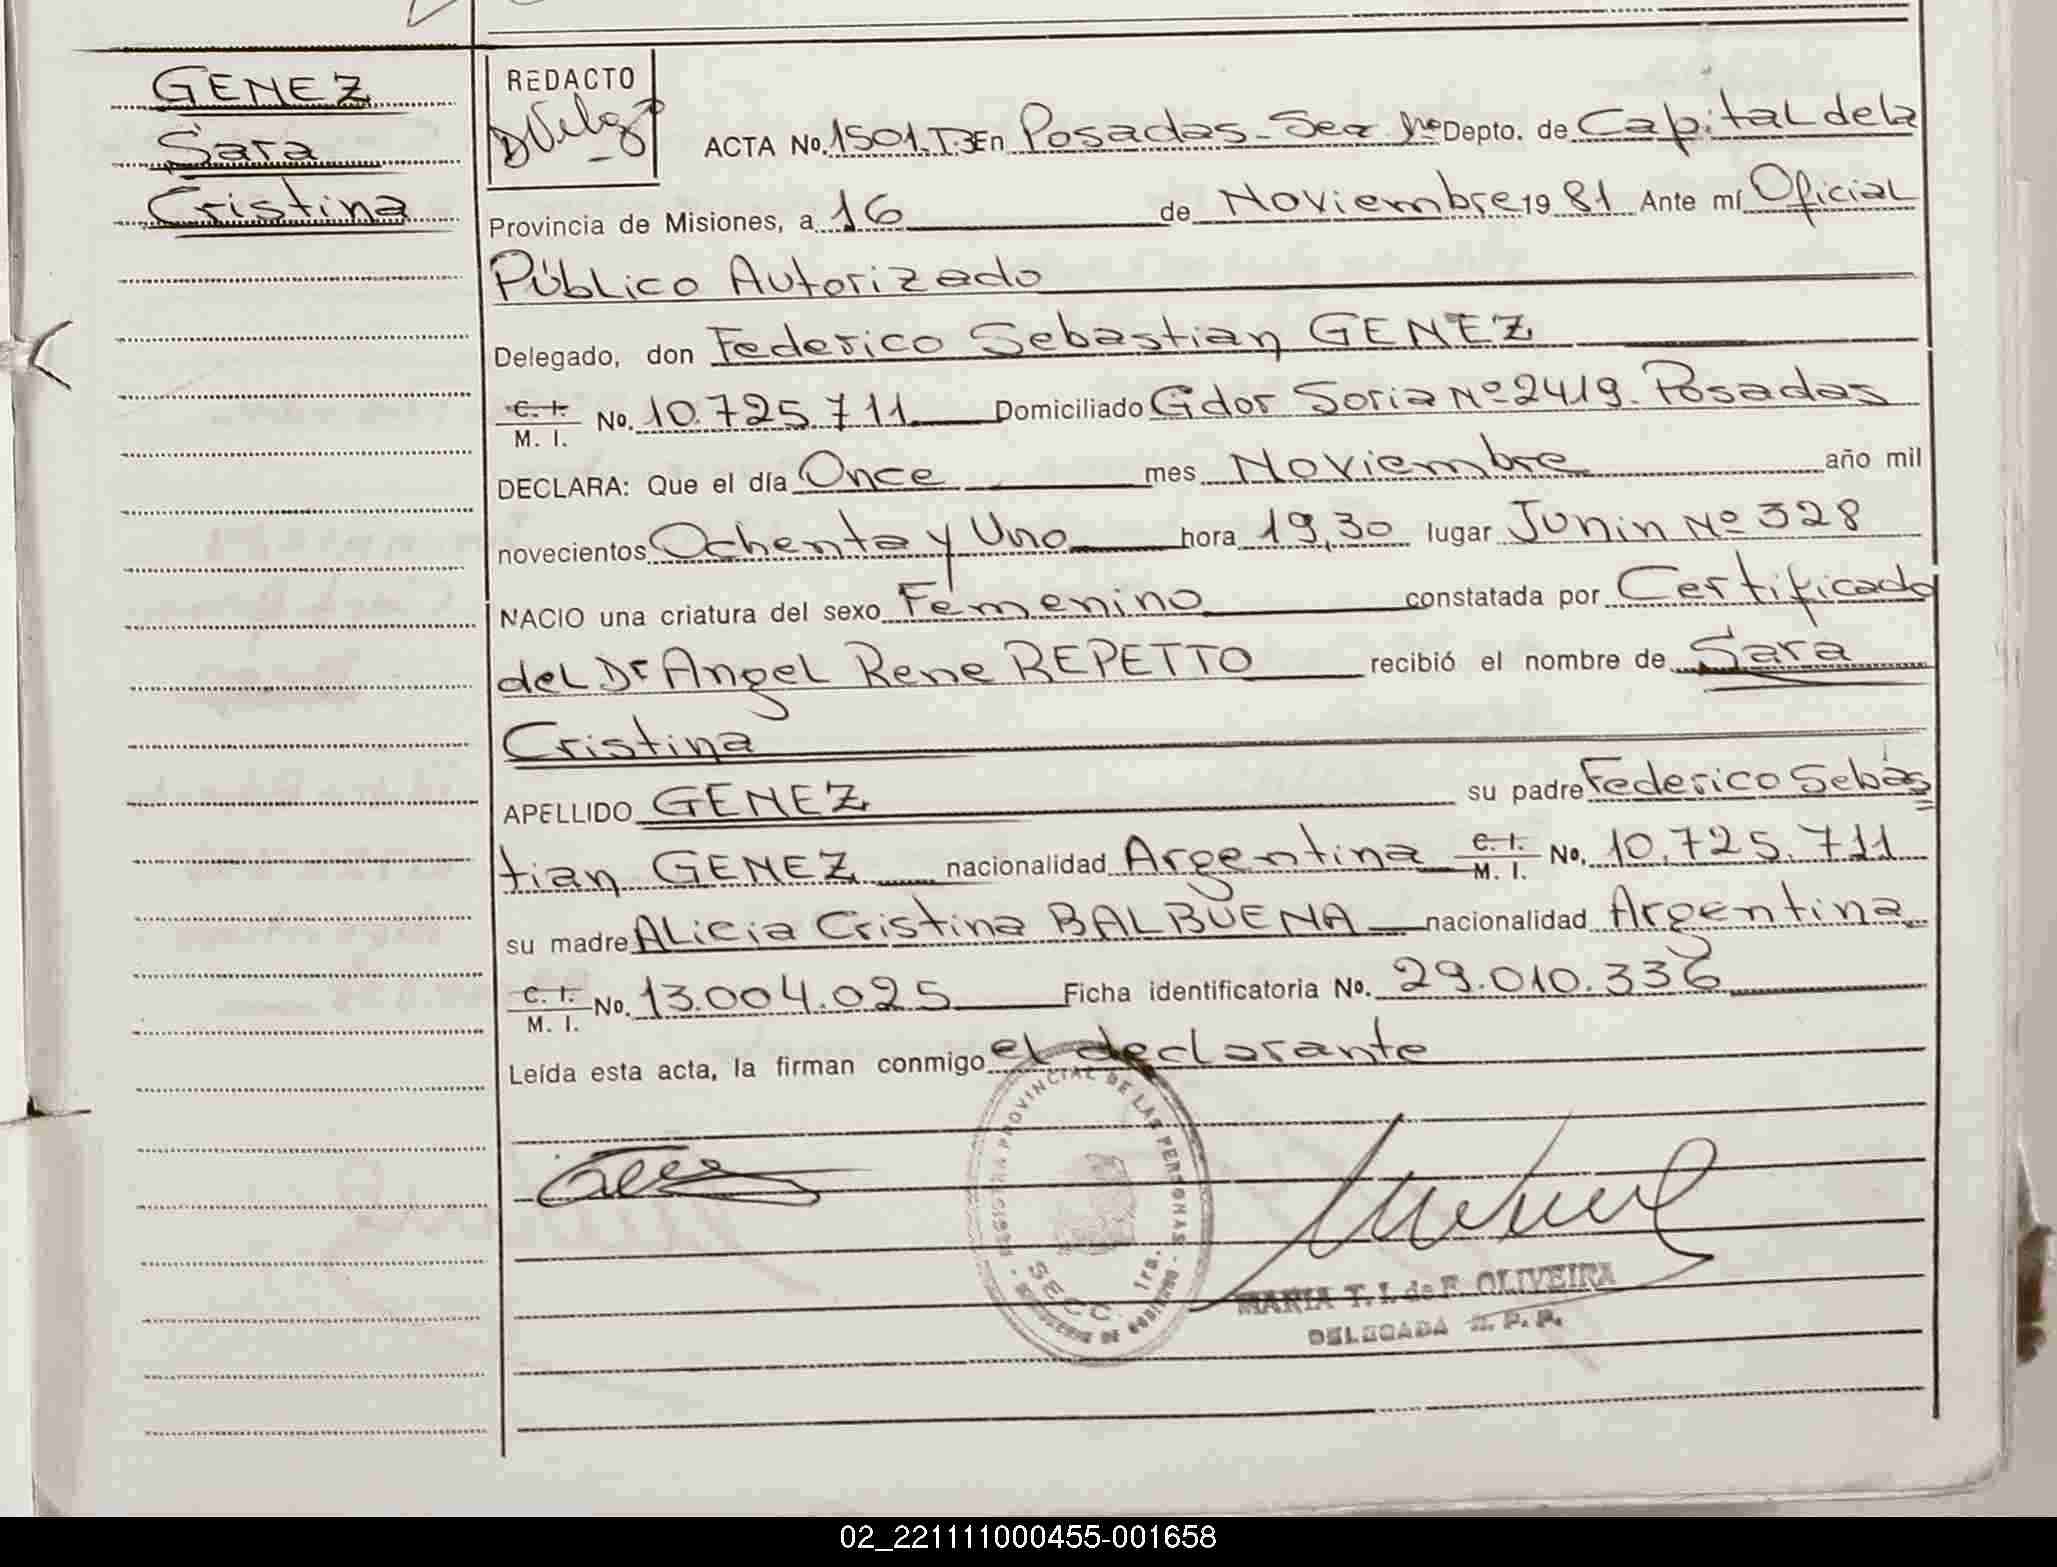 GENEZ
Sara
Cristina
REDACTO
ACTA No. 1501. T.3 En Posadas - Sea 1ª Depto. de Capital de la
Provincia de Misiones, a 16 de Noviembre 19 81 Ante mí Oficial
Público Autorizado
Delegado, don Federico Sebastian GENEZ
C. I. M. I. No. 10.725.711 Domiciliado Gdor Soria Nº 2419. Posadas
DECLARA: Que el día Once mes Noviembre año mil
novecientos Ochenta y Uno hora 19,30 lugar Junin Nº 328
NACIO una criatura del sexo Femenino constatada por Certificado
del Dr Angel Rene REPETTO recibió el nombre de Sara
Cristina
APELLIDO GENEZ su padre Federico Sebas
tian GENEZ nacionalidad Argentina C. I. M. I. No. 10.725.711
su madre Alicia Cristina BALBUENA nacionalidad Argentina
C. I. M. I. No. 13.004.025 Ficha identificatoria No. 29.010.336
Leída esta acta, la firman conmigo el declarante
REGISTRO PROVINCIAL DE LAS PERSONAS - MINISTERIO DE GOBIERNO -
SECC. 1ra.
MARIA T. I. de F. OLIVEIRA
DELEGADA R. P. P.
02_221111000455-001658